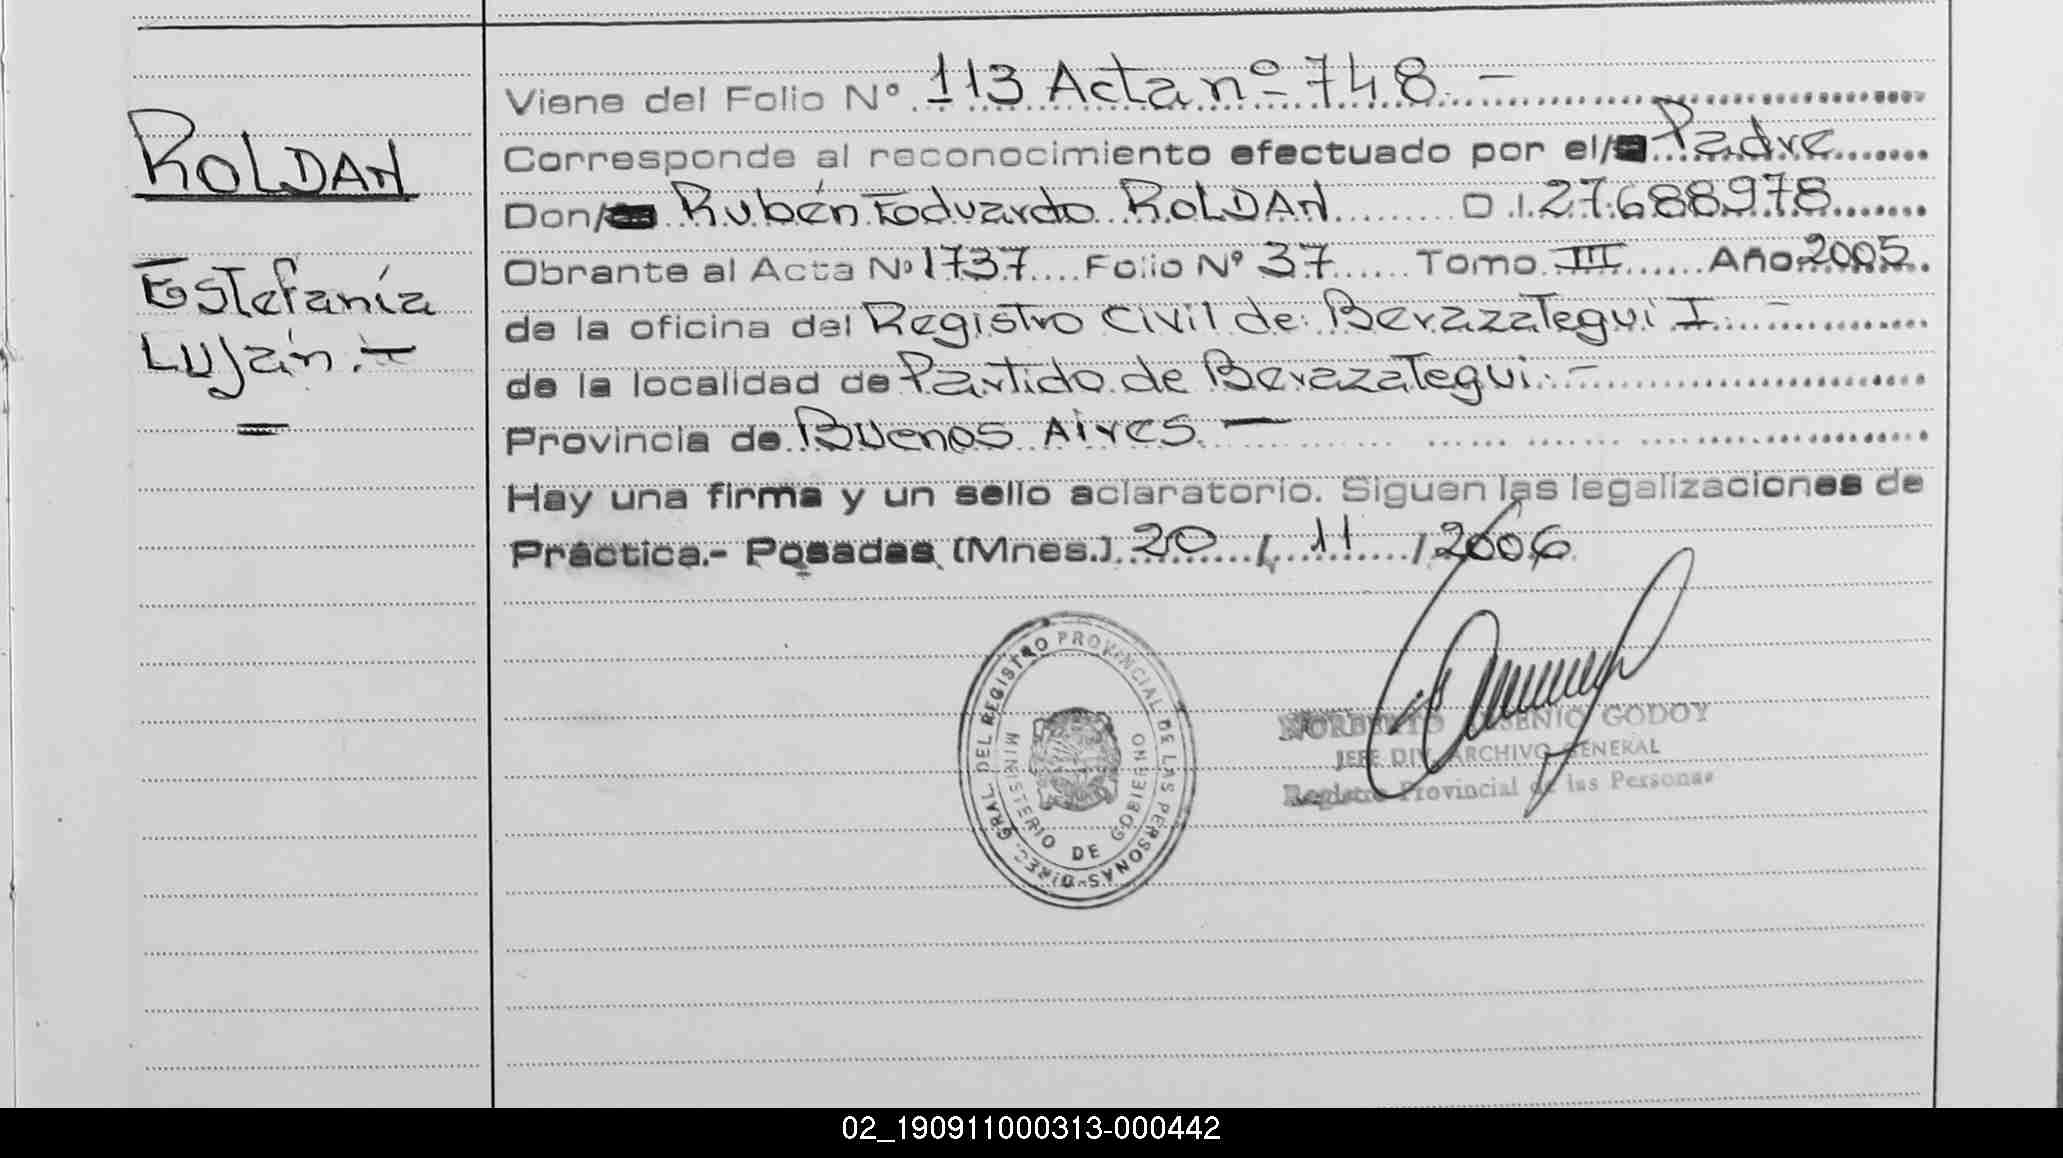 ROLDAN
Estefanía
Luján.-
Viene del Folio Nº 113 Acta nº 748.-
Corresponde al reconocimiento efectuado por el/ Padre
Don/ Rubén Eduardo ROLDAN D.I. 27.688.978
Obrante al Acta Nº 1737 Folio Nº 37 Tomo III Año 2005
de la oficina del Registro Civil de: Berazategui I. -
de la localidad de Partido de Berazategui. -
Provincia de Buenos Aires. -
Hay una firma y un sello aclaratorio. Siguen las legalizaciones de
Práctica.- Posadas (Mnes.) 20 / 11 / 2006
DIREC. GRAL. DEL REGISTRO PROVINCIAL DE LAS PERSONAS
MINISTERIO DE GOBIERNO
NORBERTO GODOY
JEFE DIV. ARCHIVO GENERAL
Registro Provincial de las Personas
02_190911000313-000442